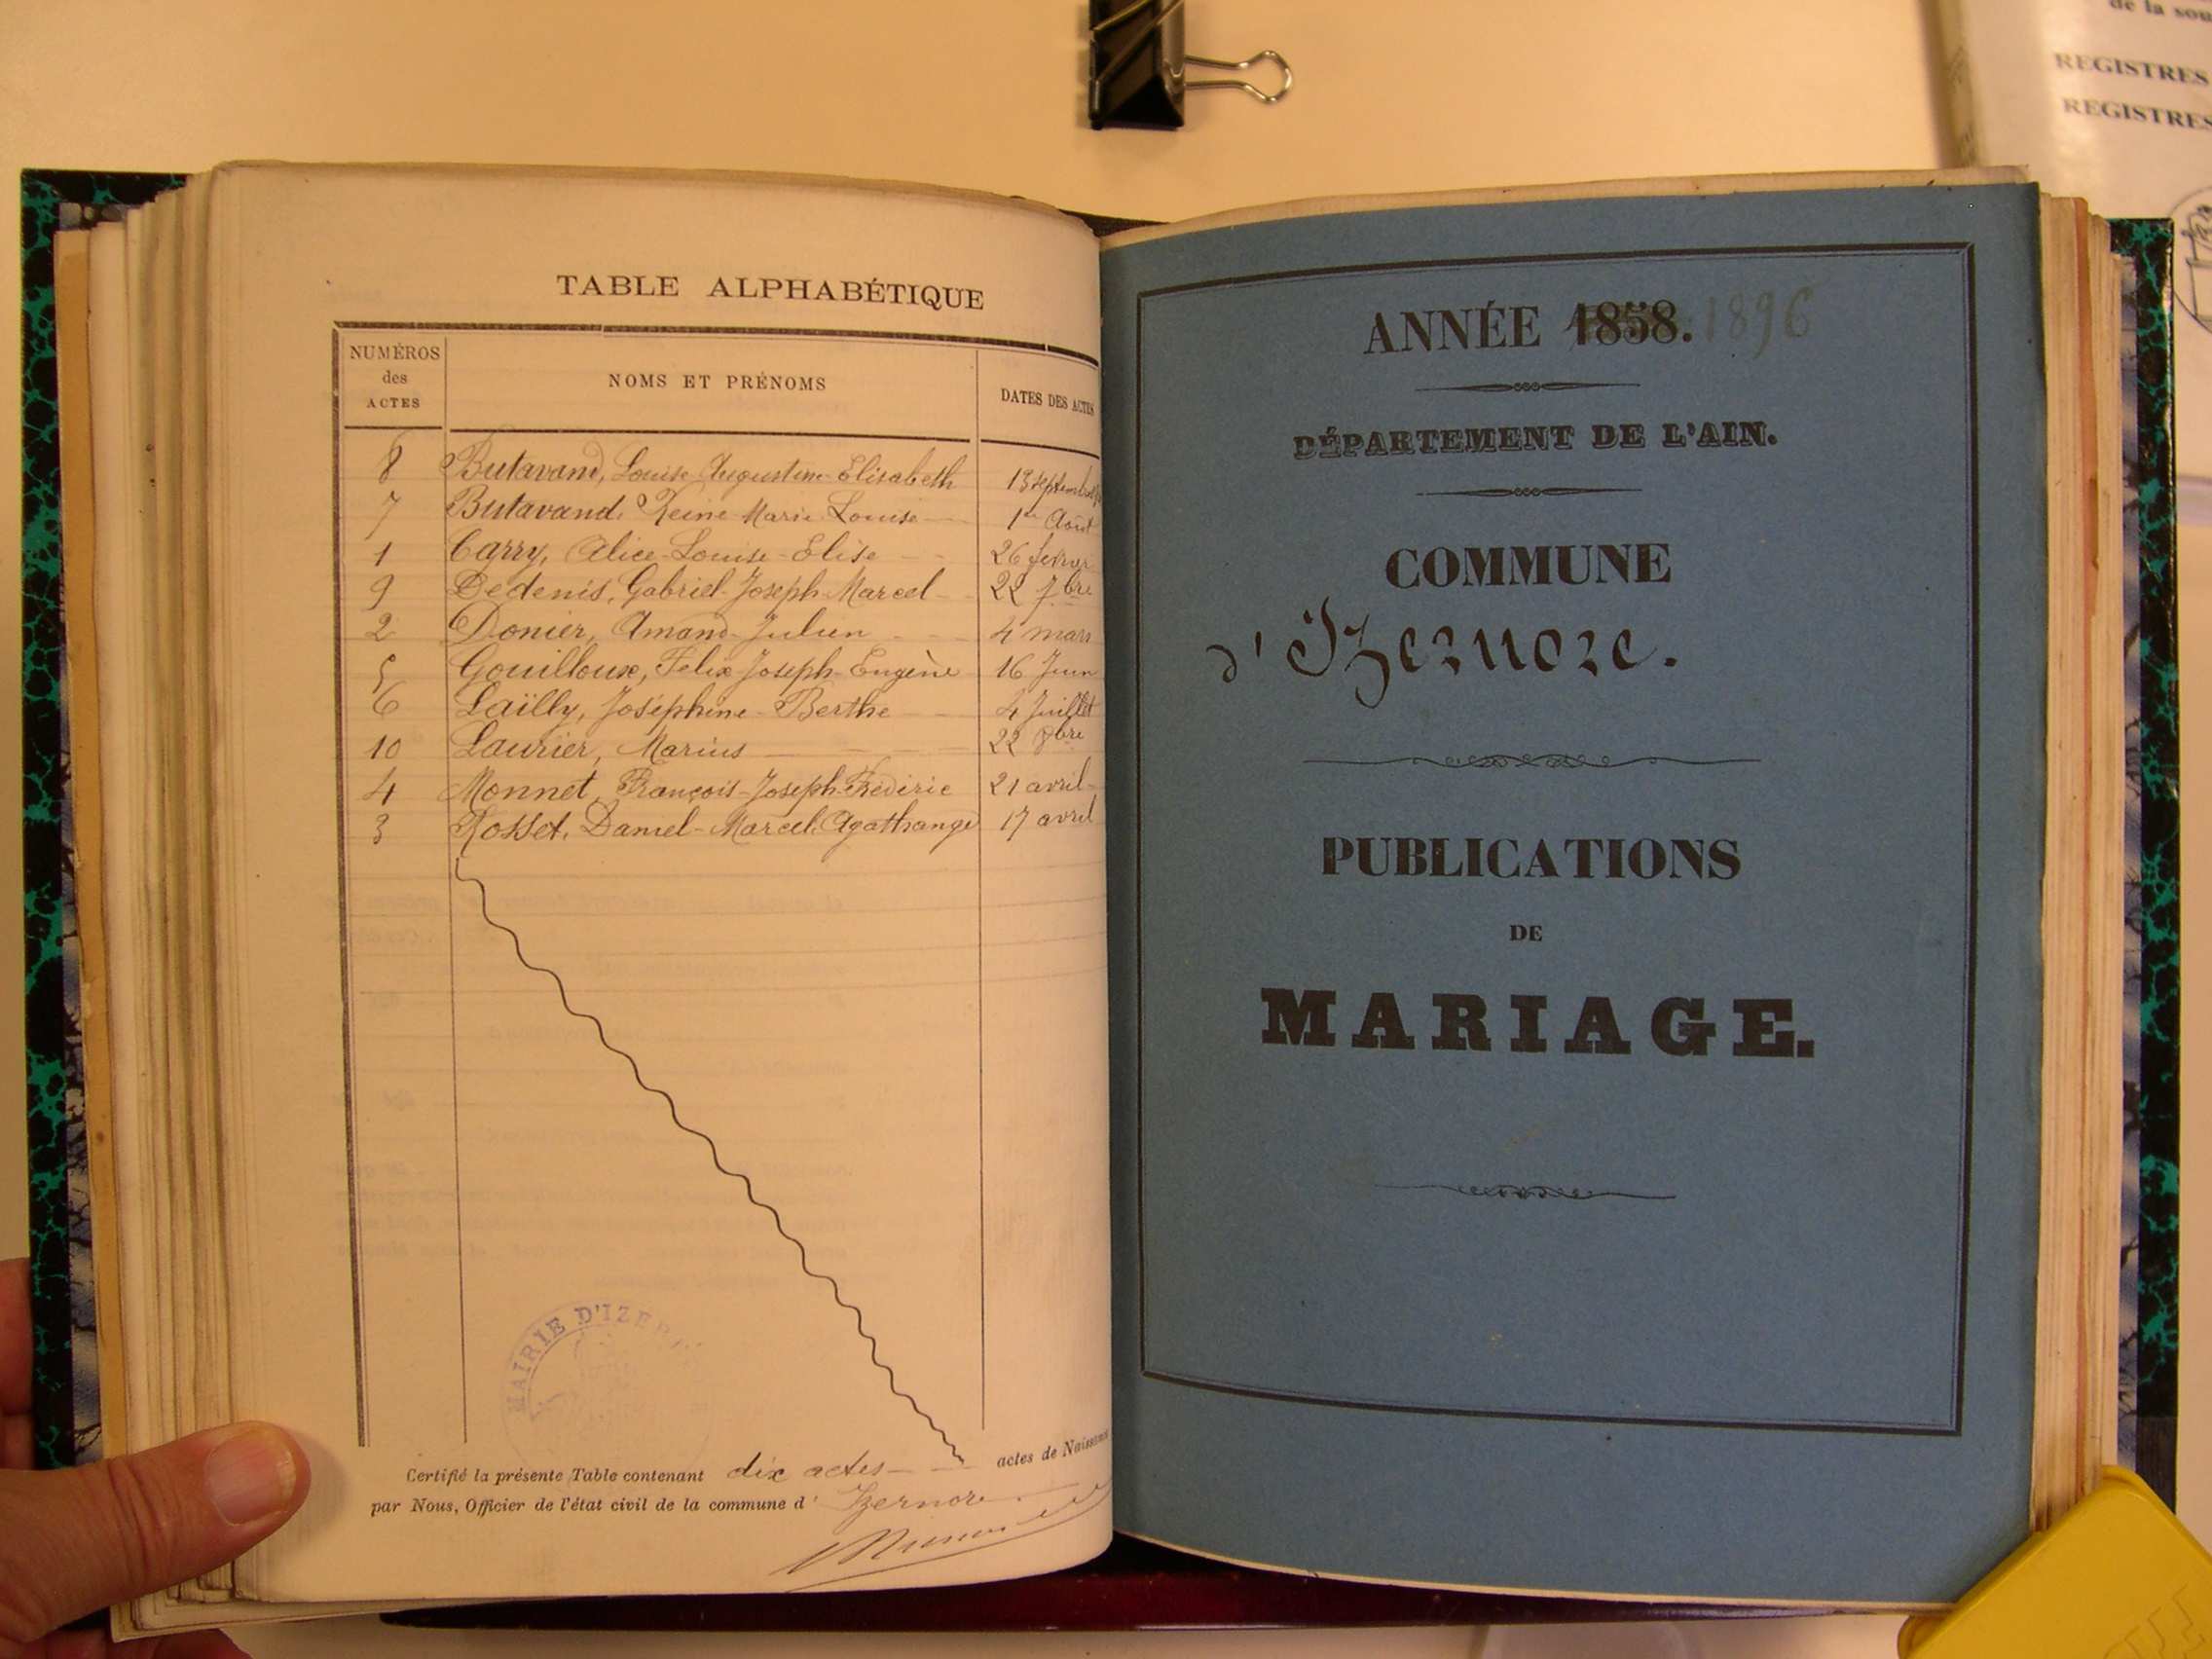 de la sou
REGISTRES
REGISTRES
TABLE ALPHABÉTIQUE
NUMÉROS des ACTES
NOMS ET PRÉNOMS
DATES DES ACTES
8 Butavand, Louise-Augustine-Elisabeth 13 septembre
7 Butavand, Reine-Marie-Louise 1er Août
1 Carry, Alice-Louise-Elise 26 fevrier
9 Dedenis, Gabriel-Joseph-Marcel 22 7bre
2 Donier, Amand-Julien 4 mars
5 Gouilloux, Felix-Joseph-Eugène 16 Juin
6 Laïlly, Joséphine-Berthe 4 Juillet
10 Laurier, Marius 22 8bre
4 Monnet, François-Joseph-Frédéric 21 avril
3 Rosset, Daniel-Marcel-Agathange 17 avril
MAIRIE D'IZER
Certifié la présente Table contenant dix actes actes de Naissance
par Nous, Officier de l'état civil de la commune d' Izernore
ANNÉE 1858. 1896
DÉPARTEMENT DE L'AIN.
COMMUNE
d'Izernore.
PUBLICATIONS
DE
MARIAGE.